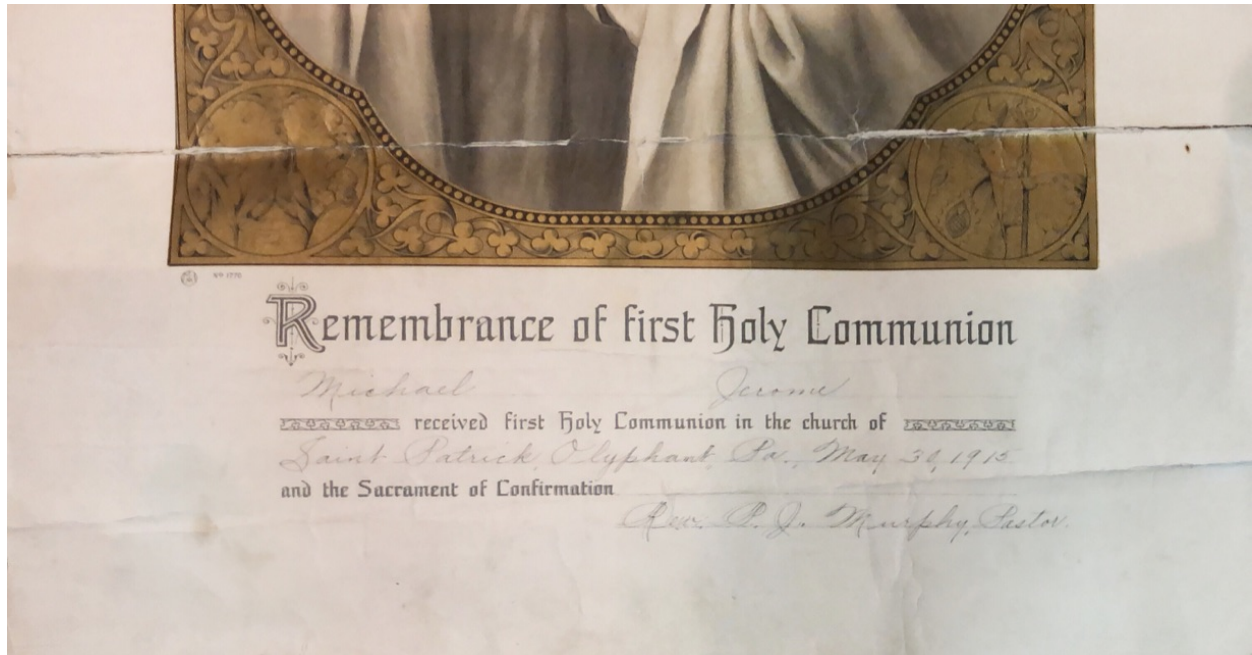 No 1770
Remembrance of first Holy Communion
Michael Jerome
received first Holy Communion in the church of
Saint Patrick, Olyphant, Pa., May 30, 1915
and the Sacrament of Confirmation
Rev. P. J. Murphy, Pastor.